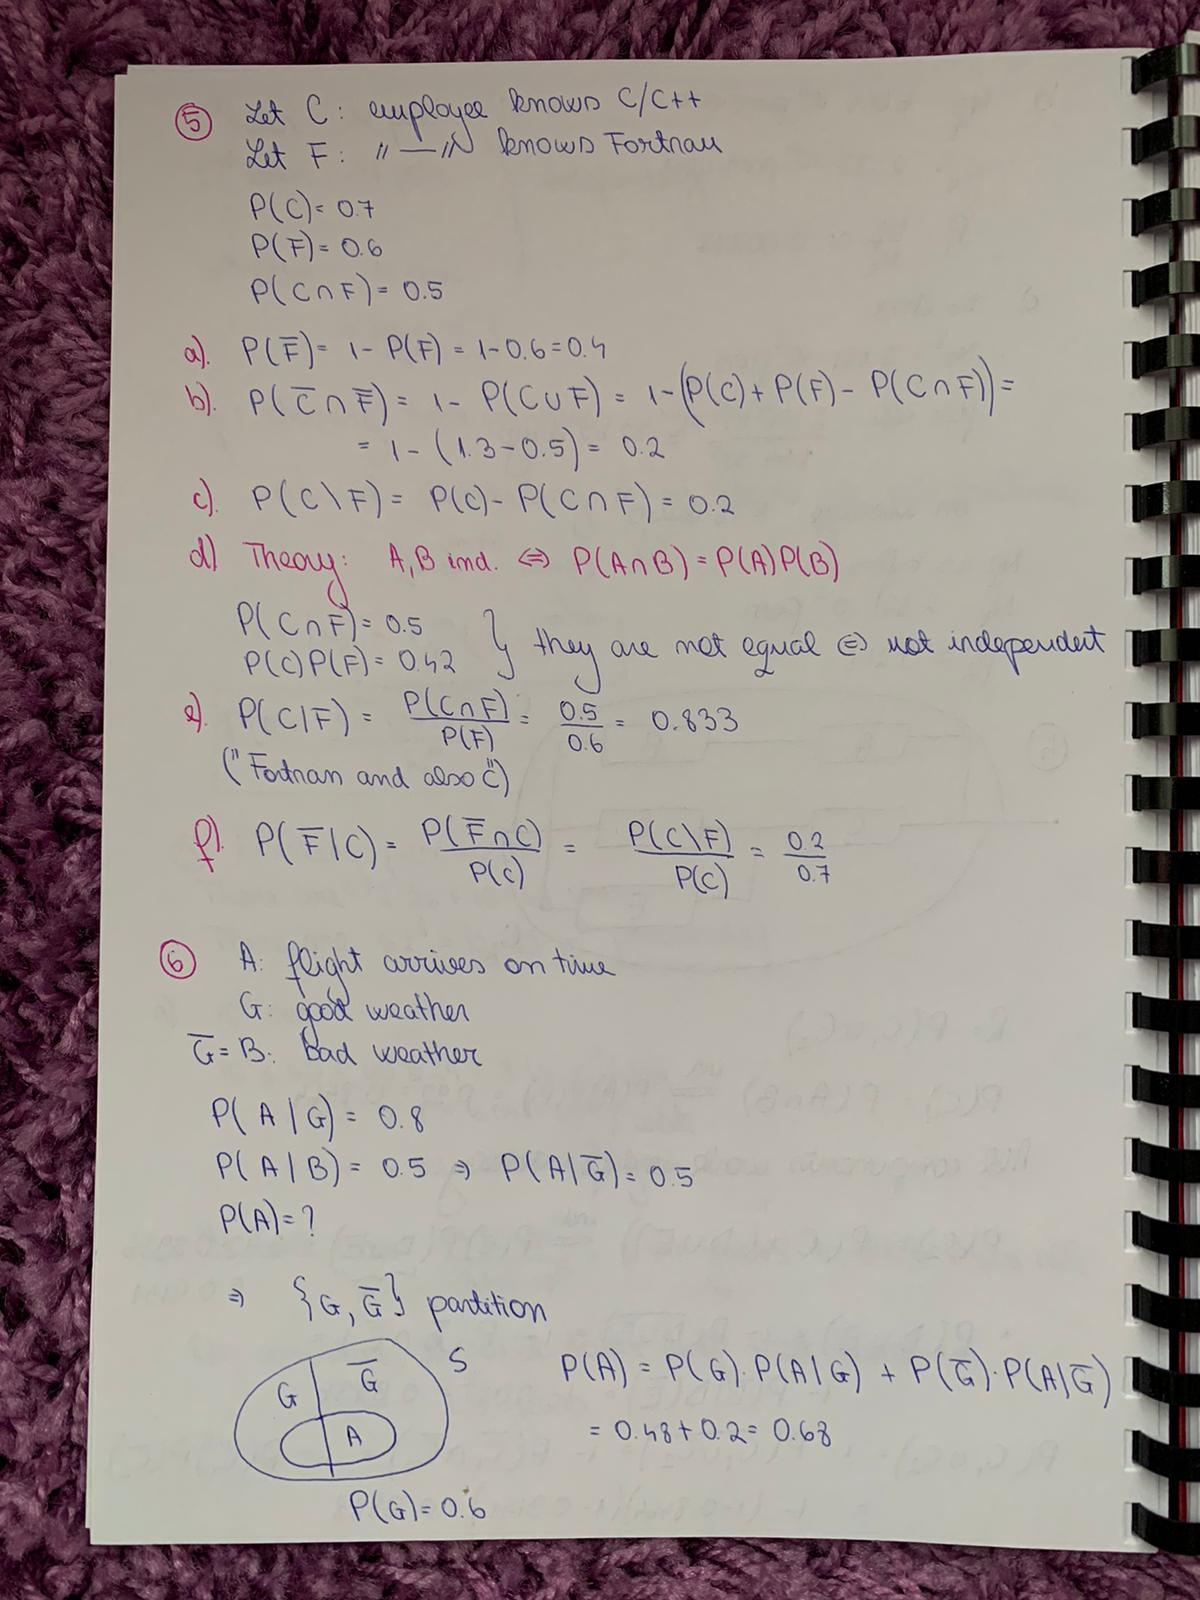 5 Let C: employee knows C/C++
Let F: "—"— knows Fortran
P(C)= 0.7
P(F)= 0.6
P(C∩F)= 0.5
a). P(F̅)= 1- P(F) = 1-0.6=0.4
b). P(C̅∩F̅) = 1- P(C∪F) = 1-(P(C)+P(F)-P(C∩F))=
= 1-(1.3-0.5)= 0.2
c). P(C\F)= P(C)- P(C∩F)= 0.2
d) Theory: A,B ind. ⇔ P(A∩B)=P(A)P(B)
P(C∩F)= 0.5
P(C)P(F)= 0.42 } they are not equal ⇔ not independent
e). P(C|F) = P(C∩F)/P(F) = 0.5/0.6 = 0.833
("Fortran and also C")
f). P(F̅|C)= P(F̅∩C)/P(C) = P(C\F)/P(C) = 0.2/0.7
6 A: flight arrives on time
G: good weather
G̅=B: bad weather
P(A|G)= 0.8
P(A|B)= 0.5 ⇒ P(A|G̅)= 0.5
P(A)=?
⇒ {G,G̅} partition
G G̅ S
A
P(A) = P(G)·P(A|G) + P(G̅)·P(A|G̅)
= 0.48+0.2= 0.68
P(G)=0.6